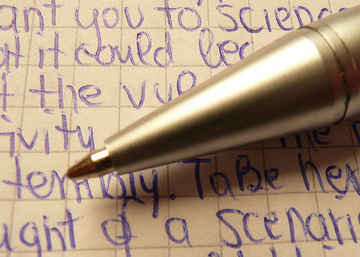 ant you to science
it could be
t the vul
ivity the
terribly. To Be her
ught of a scenari